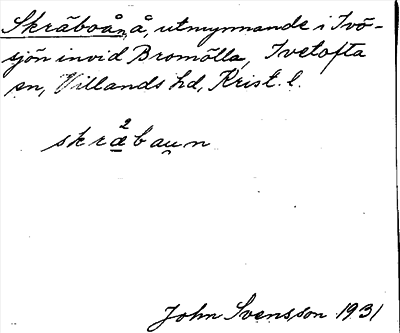 Skräboån, å, utmynnande i Ivö-
sjön invid Bromölla, Ivetofta
sn, Villands hd, Krist. l.
2
skräbaun
John Svensson 1931